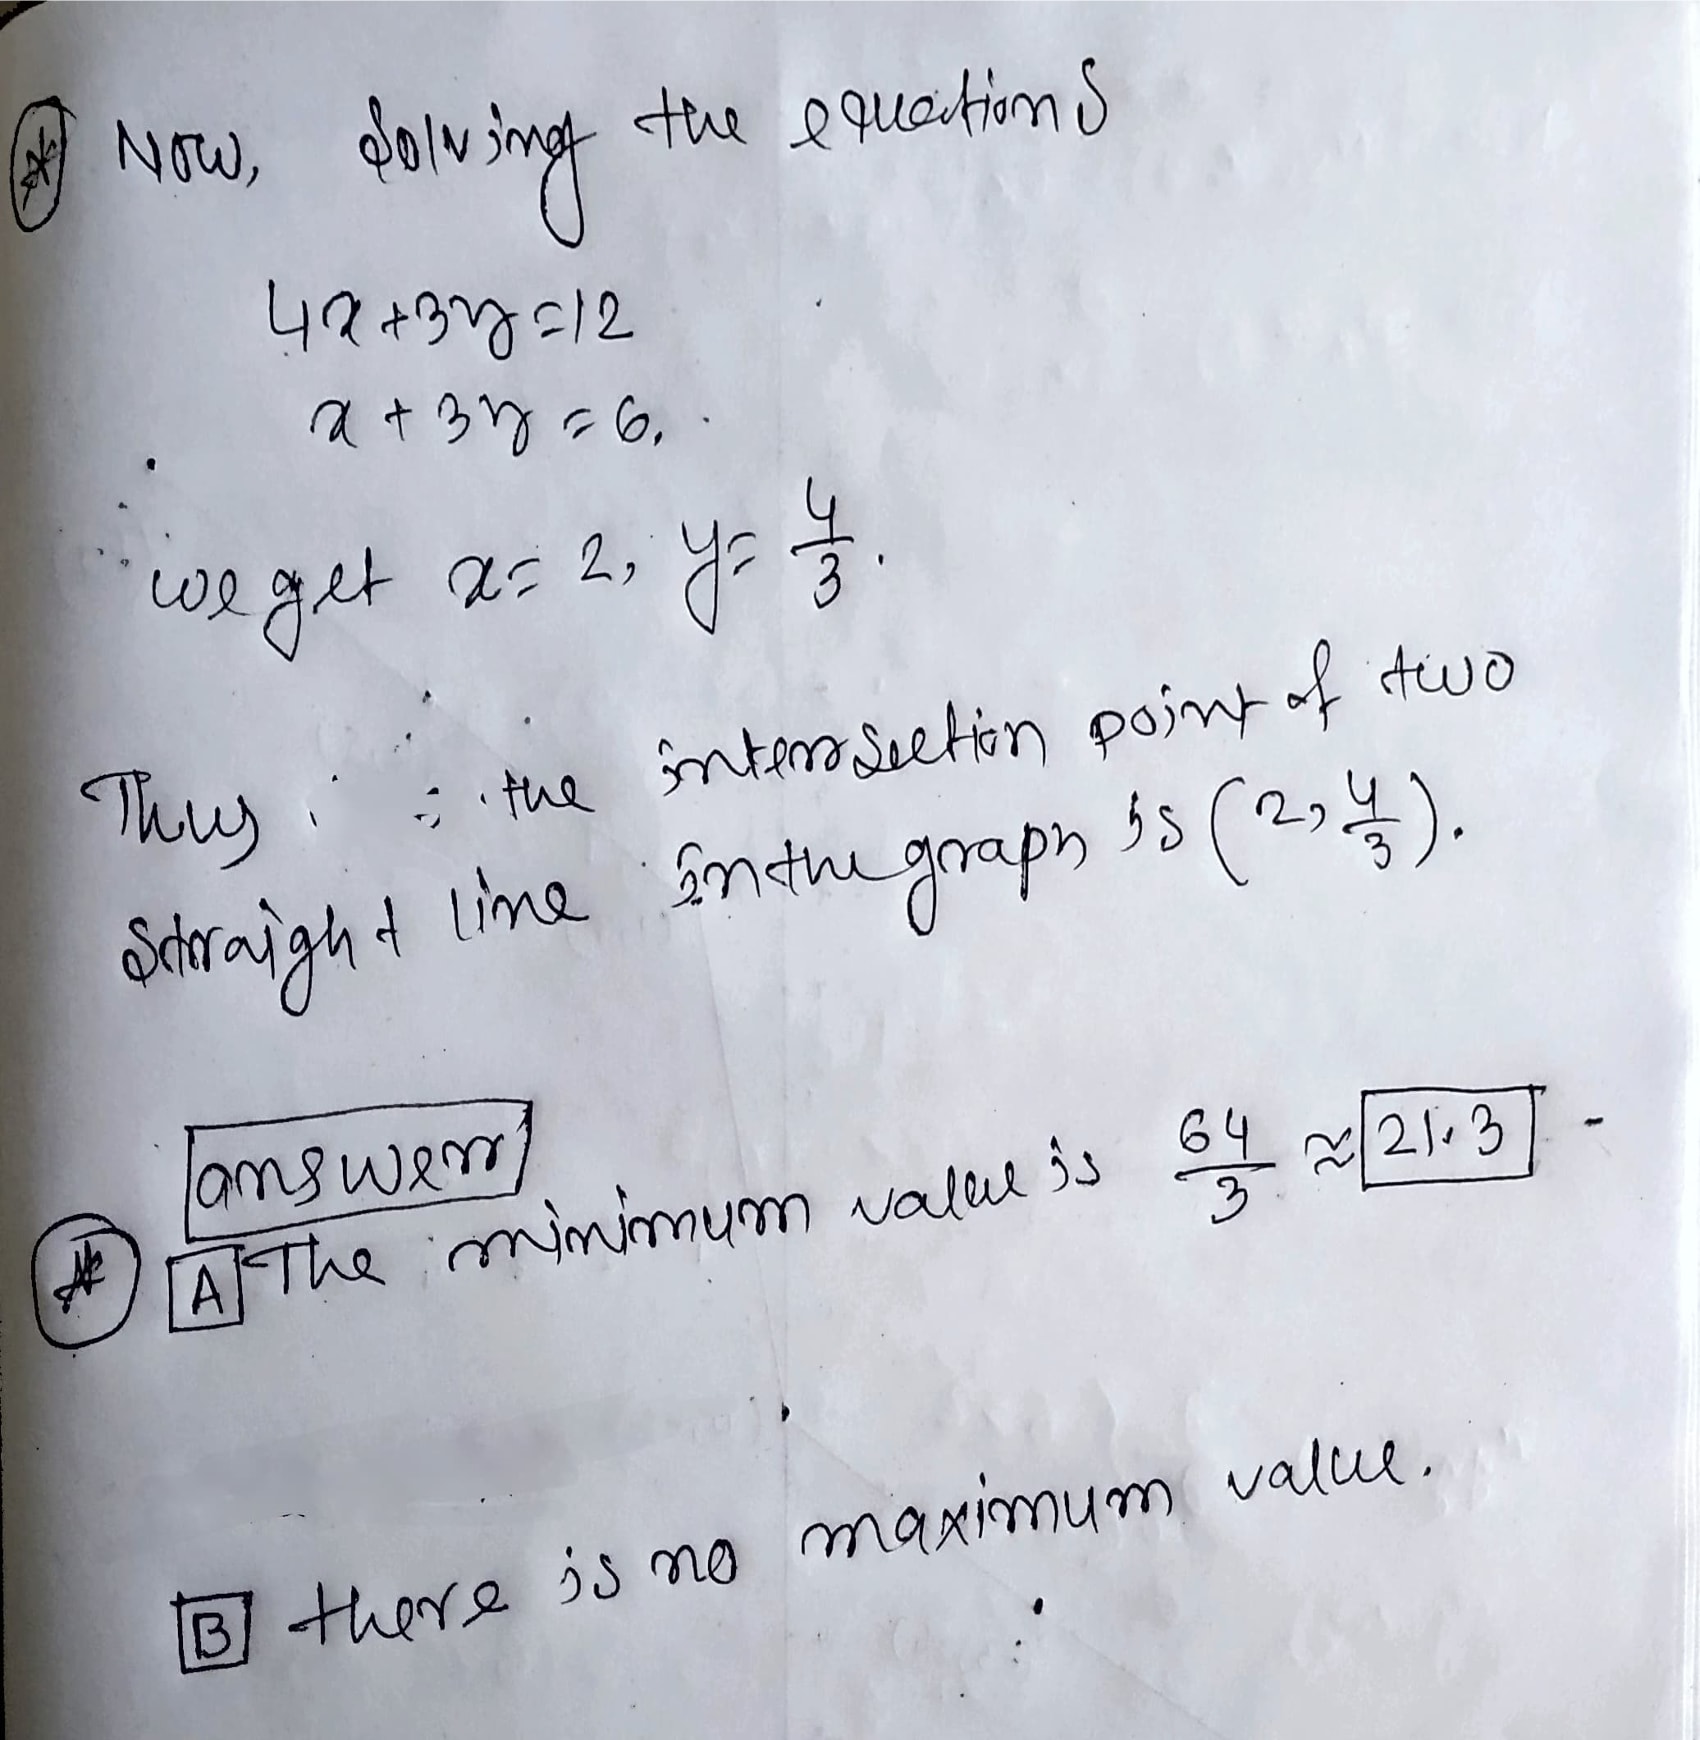 Now, solving the equations
4x+3y=12
x+3y=6.
we get x=2, y=4/3.
Thus the intersection point of two
straight line in the graph is (2, 4/3).
answer
A The minimum value is 64/3 ≈ 21.3
B there is no maximum value.